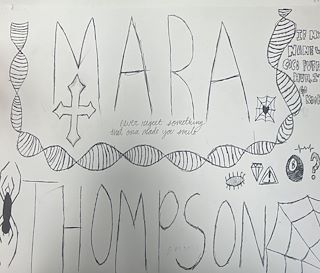 MARA
IF
Never regret something
that once made you smile
THOMPSON
!
8
?